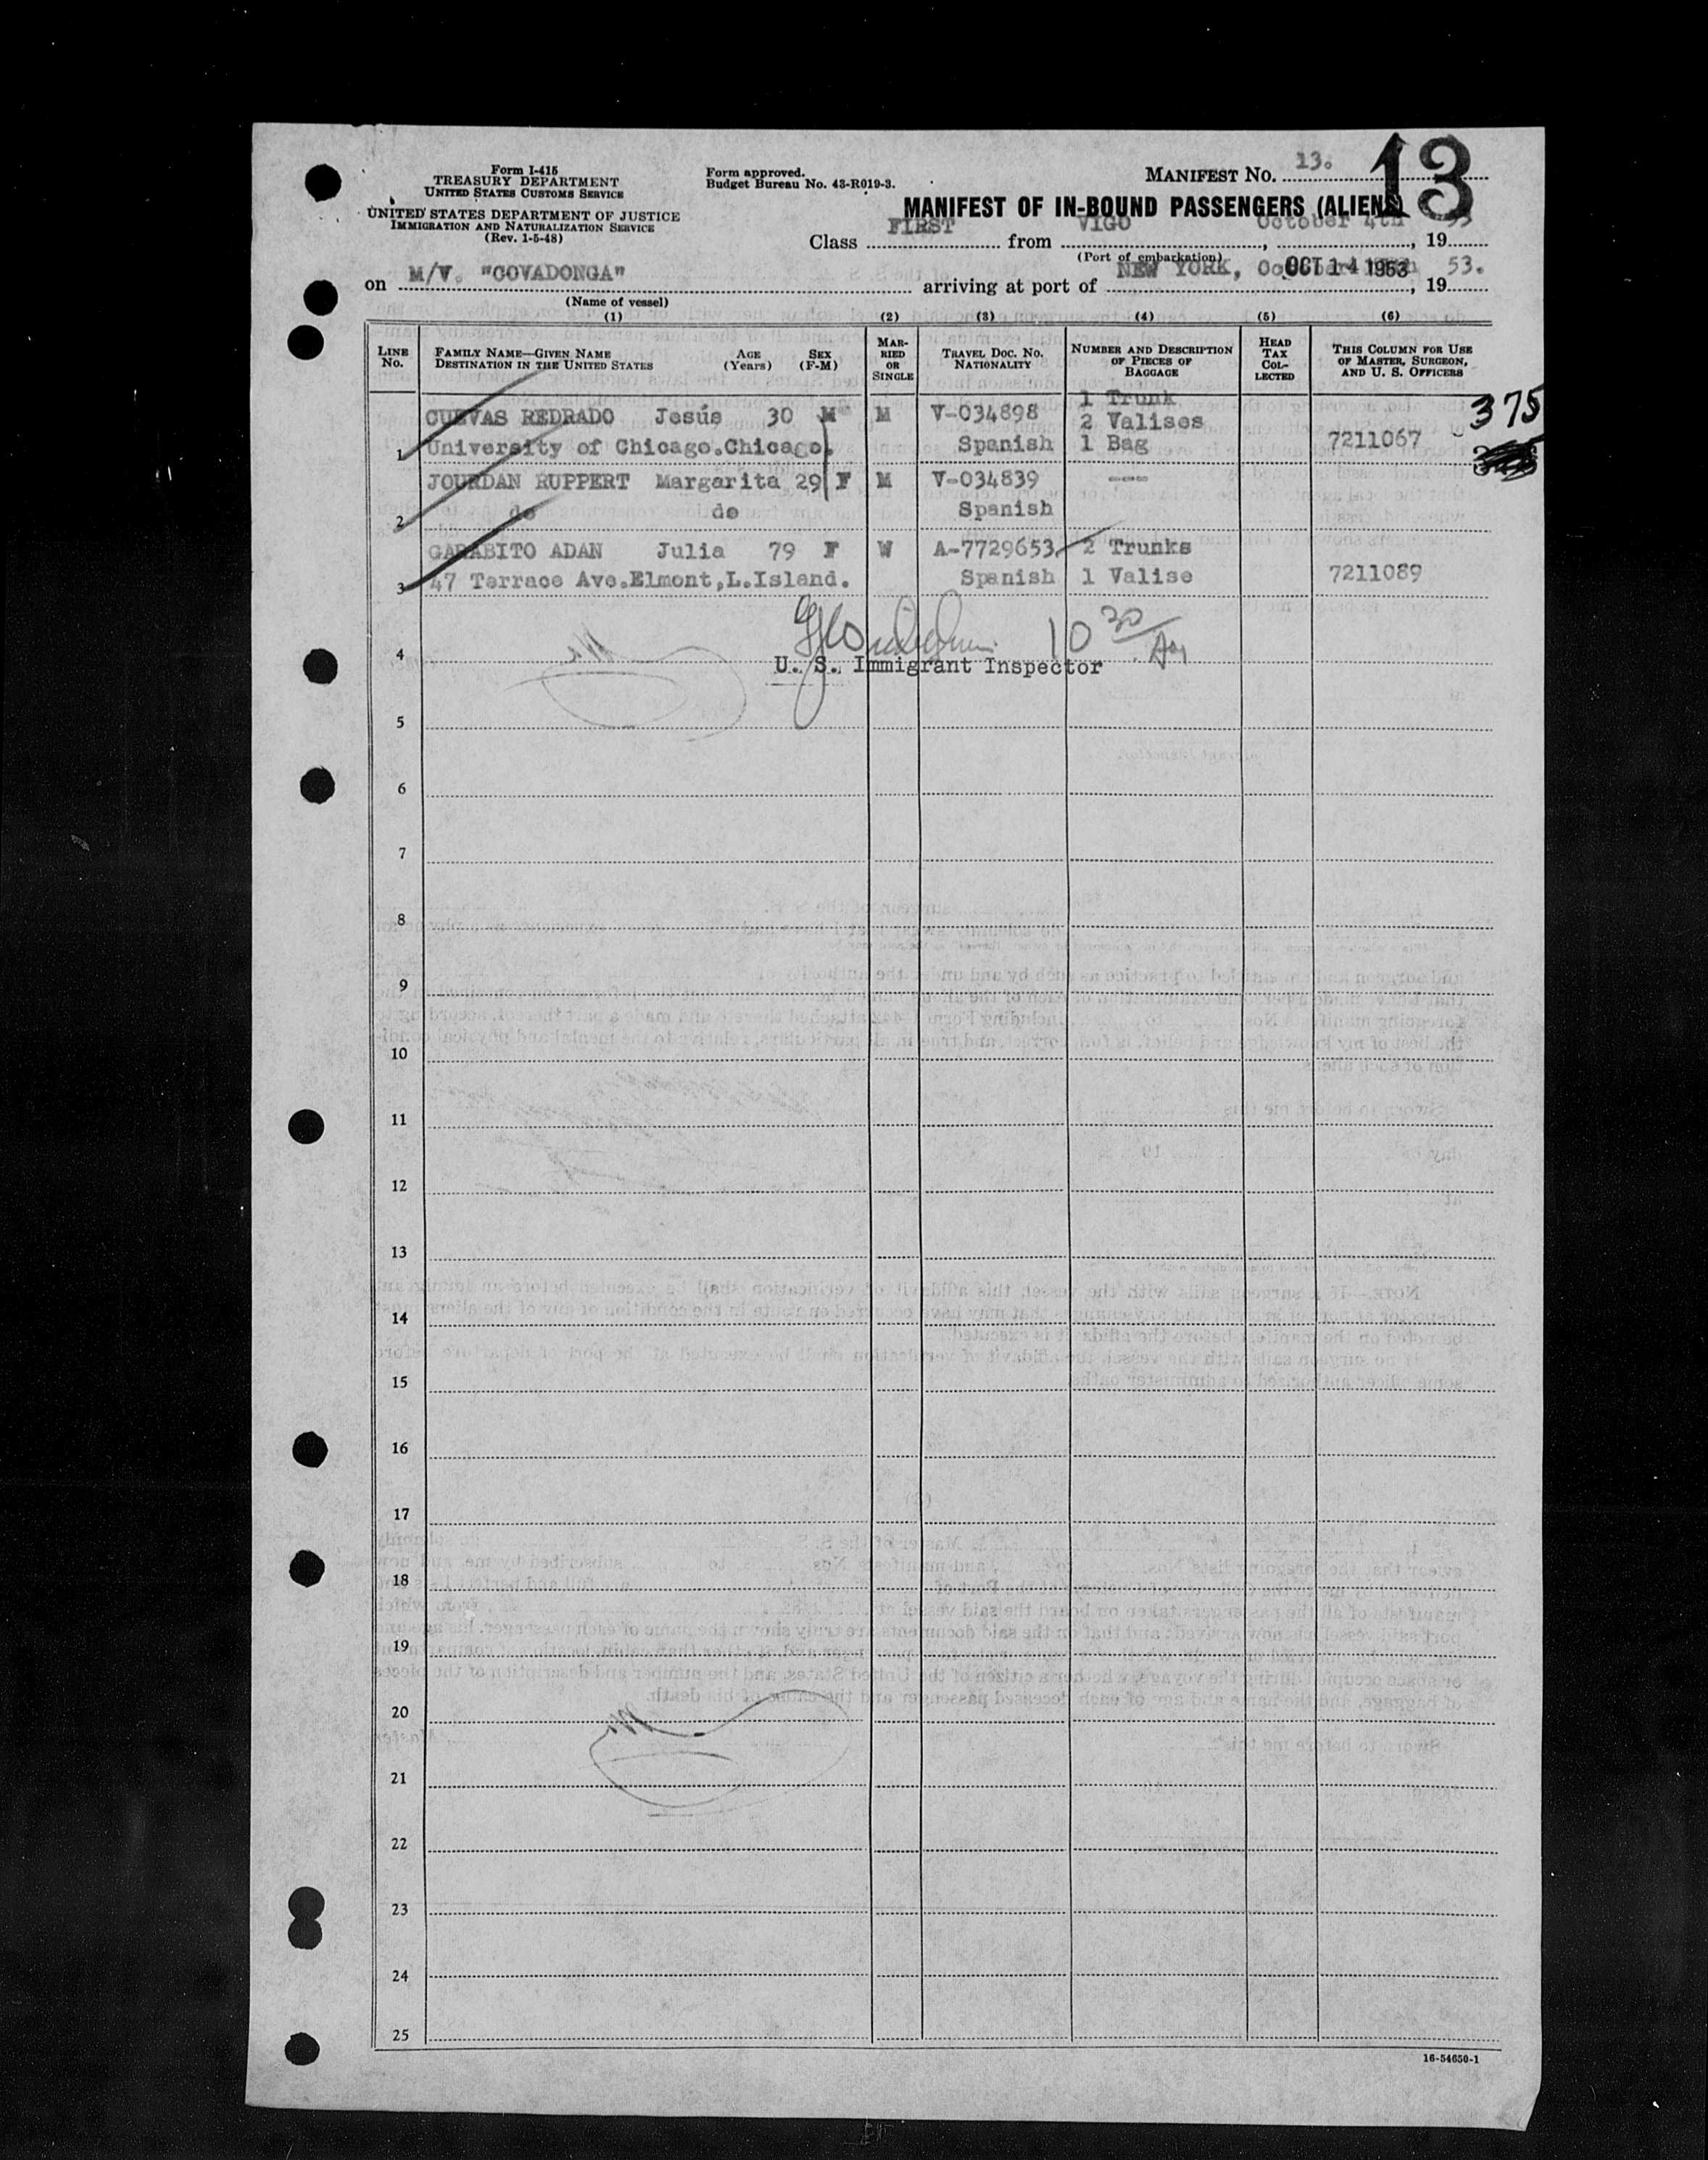 Form I-415
TREASURY DEPARTMENT
UNITED STATES CUSTOMS SERVICE
UNITED STATES DEPARTMENT OF JUSTICE
IMMIGRATION AND NATURALIZATION SERVICE
(Rev. 1-5-48)
Form approved.
Budget Bureau No. 43-R019-3.
MANIFEST NO. 13.
13
MANIFEST OF IN-BOUND PASSENGERS (ALIENS)
Class FIRST from VIGO, October 4th, 19 53
(Port of embarkation)
on M/V. "COVADONGA" arriving at port of NEW YORK, OCT 14 1953, 19 53.
(Name of vessel)
(1) (2) (3) (4) (5) (6)
LINE No. FAMILY NAME—GIVEN NAME DESTINATION IN THE UNITED STATES AGE (Years) SEX (F-M) MARRIED OR SINGLE TRAVEL DOC. NO. NATIONALITY NUMBER AND DESCRIPTION OF PIECES OF BAGGAGE HEAD TAX COLLECTED THIS COLUMN FOR USE OF MASTER, SURGEON, AND U. S. OFFICERS
1 Trunk
375
CUEVAS REDRADO Jesús 30 M M V-034898 2 Valises
1 University of Chicago.Chicago. Spanish 1 Bag 7211067
JOURDAN RUPPERT Margarita 29 F M V-034839 ----
2 do do Spanish
GARABITO ADAN Julia 79 F W A-7729653 2 Trunks
3 47 Terrace Ave.Elmont,L.Island. Spanish 1 Valise 7211089
10 30/
4
U. S. Immigrant Inspector
5
6
7
8
9
10
11
12
13
14
15
16
17
18
19
20
21
22
23
24
25
16-54650-1